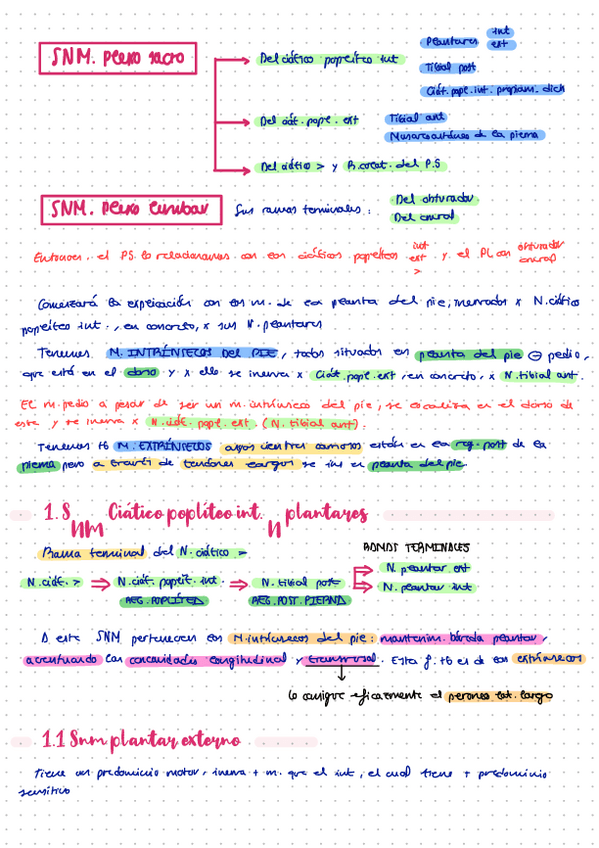 SNM. Plexo sacro
Del ciático popliteo int
Plantares int
ext
Tibial post
Ciát. popl. int. propiam. dich
Del ciát. popl. ext
Tibial ant
Musculocutáneo de la pierna
Del ciático > y R. colat. del P.S
SNM. Plexo lumbar
Sus ramas terminales:
Del obturador
Del crural
Entonces, el PS lo relacionamos con los ciáticos popliteos int ext > y el PL con obturador crural
Comenzará la explicación con los m. de la planta del pie, inervados x N. ciático
popliteo int., en concreto, x sus N. plantares
Tenemos M. INTRÍNSECOS DEL PIE, todos situados en planta del pie ⊖ pedio,
que está en el dorso y x ello se inerva x Ciát. popl. ext, en concreto, x N. tibial ant.
El m. pedio a pesar de ser un m. intrínseco del pie, se localiza en el dorso de
este y se inerva x N. ciát. popl. ext. (N. tibial ant).
Tenemos tb M. EXTRÍNSECOS cuyos vientres carnosos están en la reg. post de la
pierna pero a través de tendones largos se ins en planta del pie.
1. Snm Ciático poplíteo int. n plantares
Rama terminal del N. ciático >
RAMAS TERMINALES
N. ciát. > → N. ciát. poplít. int. → N. tibial post
N. plantar ext
N. plantar int
REG. POPLÍTEA
REG. POST. PIERNA
A este SNM pertenecen los M. intrínsecos del pie: mantenim. bóveda plantar,
acentuando las concavidades longitudinal y transversal. Esta f. tb es de los extrínsecos
lo consigue eficazmente el peroneo lat. largo
1.1 Snm plantar externo
Tiene un predominio motor, inerva + m. que el int, el cual tiene + predominio
sensitivo